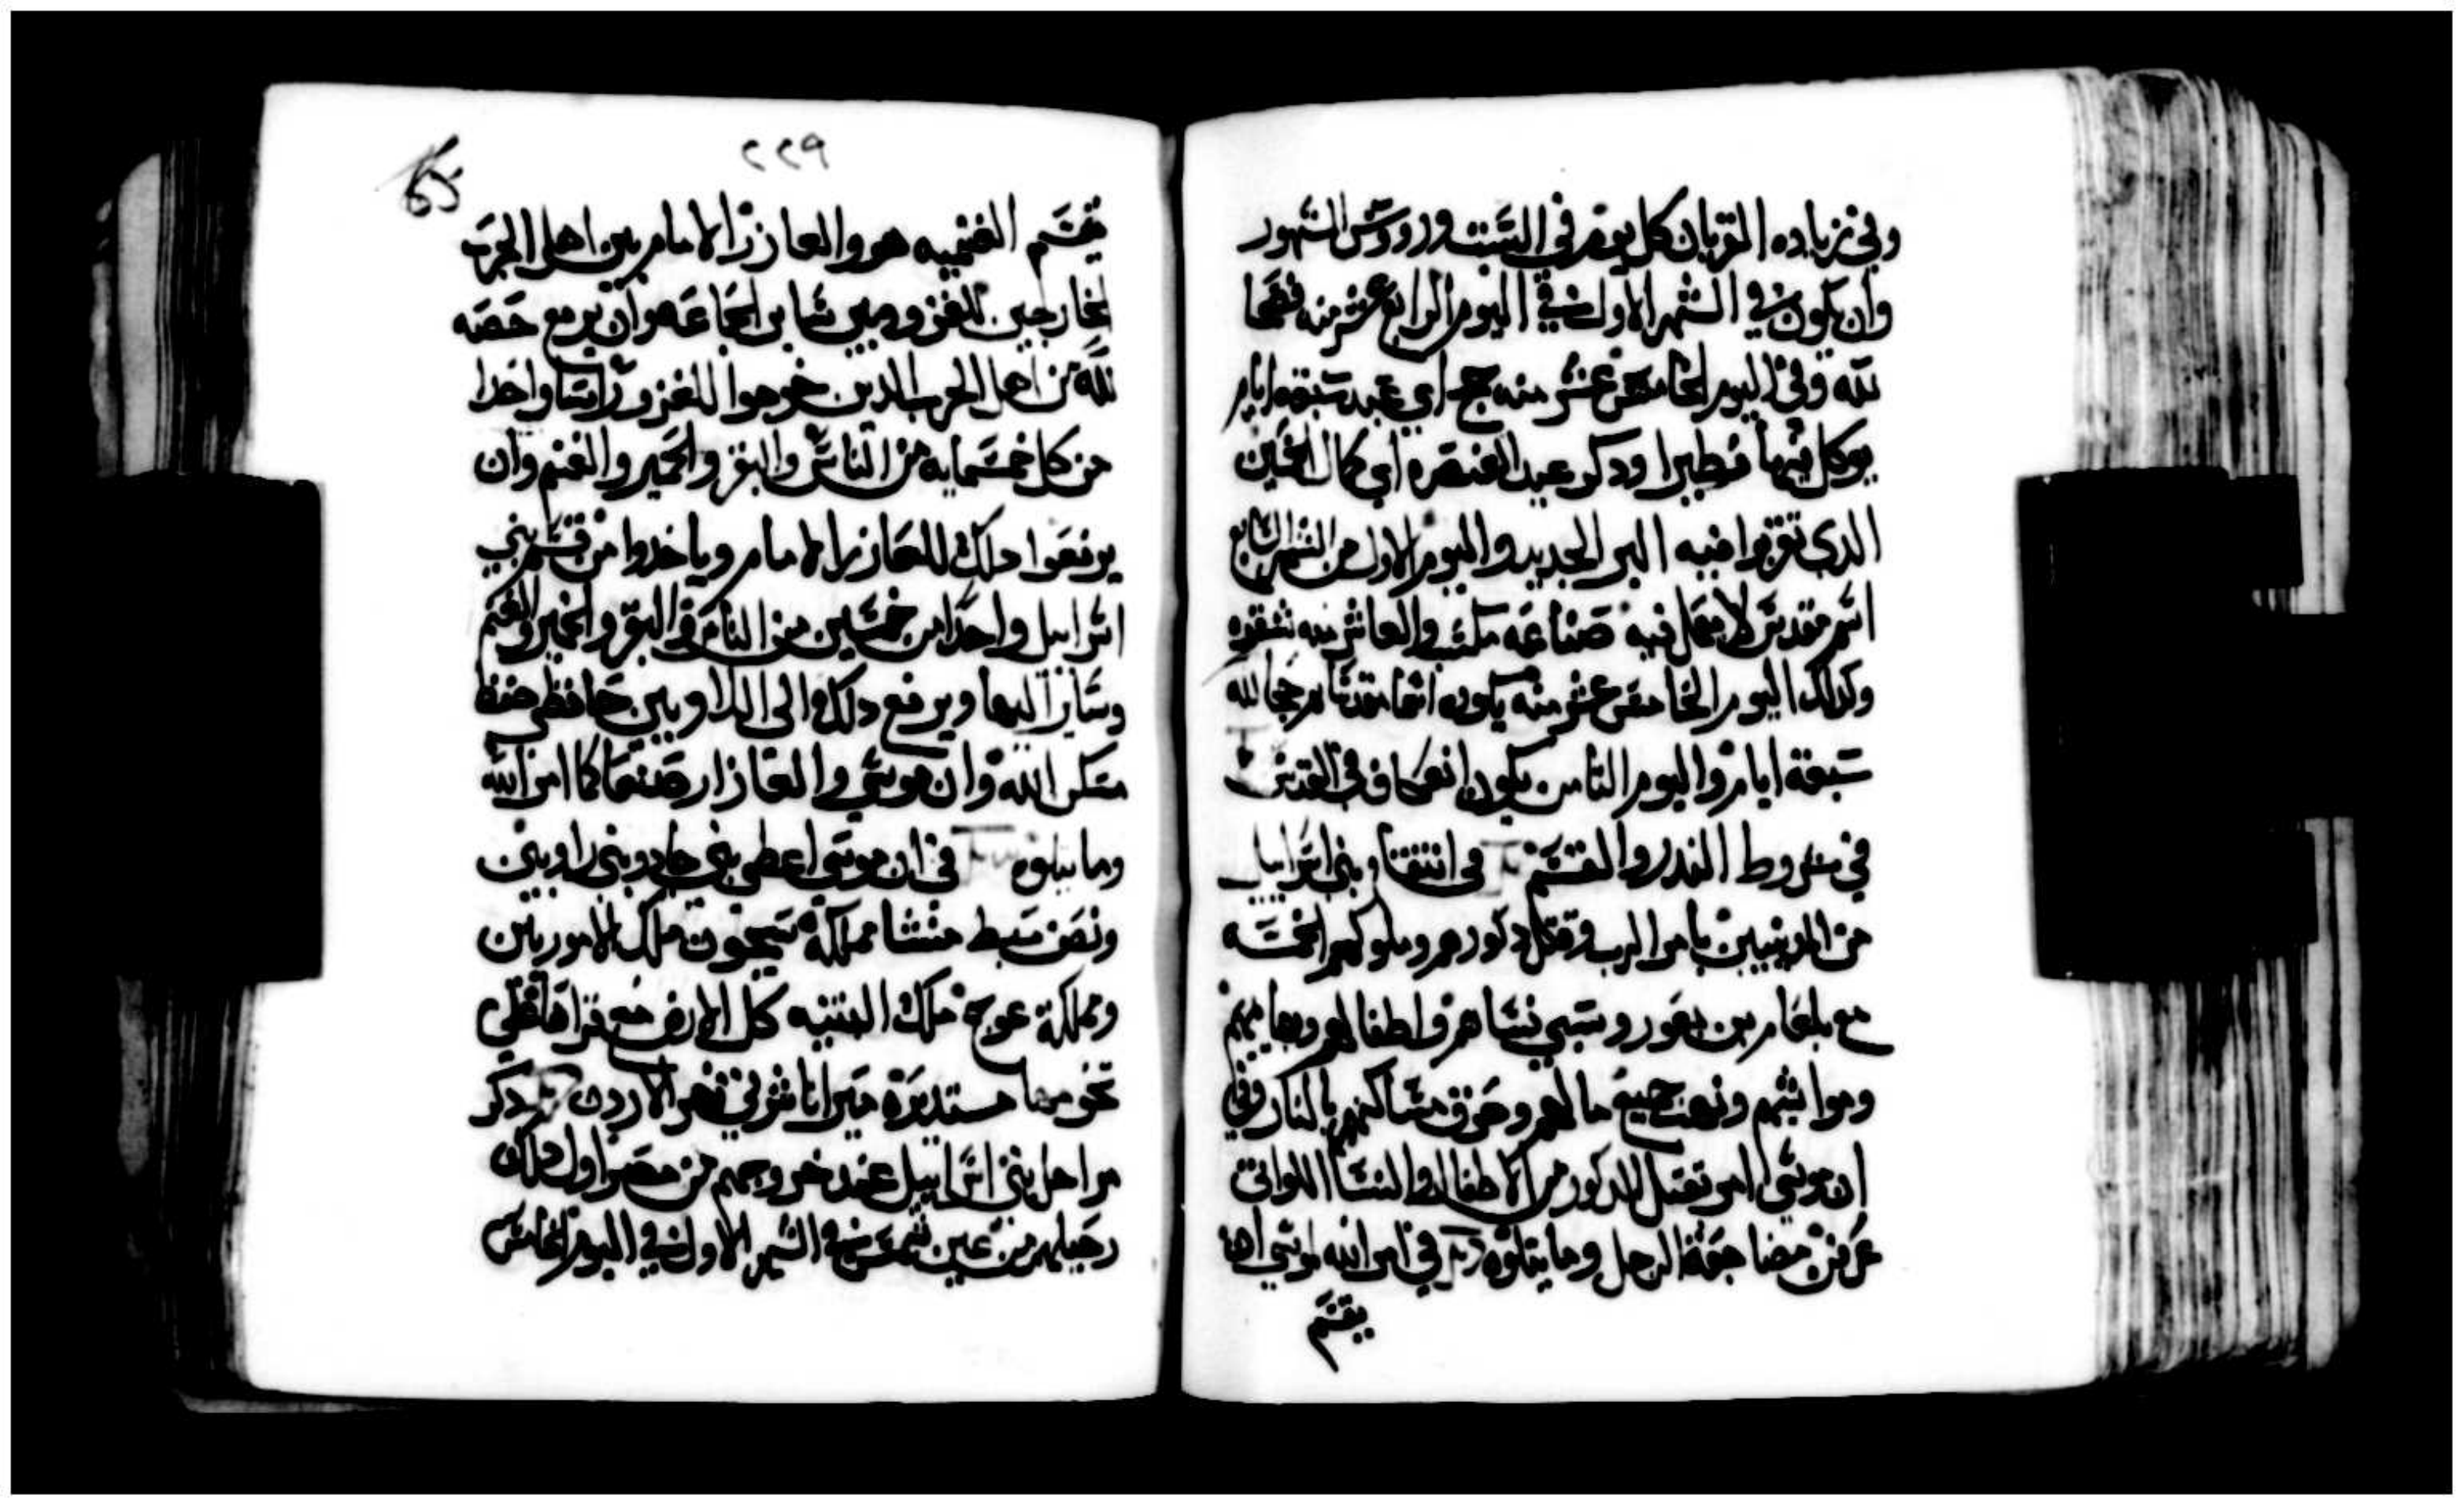 وفي زياده القربان كل يوم في السبت ورووس الشهور
وان يكون في الشهر الاول في اليوم الرابع عشر منه فصحا
لله وفي اليوم الخامس عشر منه حج اي عيد سبعة ايام
يوكل فيها فطيرا ودكر عيد العنصره اي كمال الخمسين
الدي تقربوا فيه البر الجديد واليوم الاول من الشهر السابع
اسم مقدس لا يعمل فيه صناعه مكسب والعاشر منه
وكدلك اليوم الخامس عشر منه يكون اسما مقدسا حجا لله
سبعة ايام واليوم الثامن يكون انعكاف في القدس
في شروط الندر والقسم في انتقام بني اسراييل
من المدينيين بامر الرب وقتل دكورهم وملوكهم الخمسه
مع بلعام بن بعور وسبي نساهم واطفالهم وبهايمهم
ومواشيهم ونهب جميع مالهم وحرق مساكنهم بالنار وفي
ان موسي امر بقتل الدكور من الاطفال والنسا اللواتي
عرفن مضاجعة الرجل وما يتلوه في امر الله لموسي ان
يقسم
٢٢٩
يقسم الغنيمه هو والعازر الامام بين اهل الحرب
الخارجين للغزو وبين ساير الجماعه وان يرفع حصه
لله من اهل الحرب الدين خرجوا للغزو راسا واحدا
من كل خمسمايه من الناس والبقر والحمير والغنم وان
يرفعوا دلك للعازر الامام وياخدوا من قسم بني
اسراييل واحدا من خمسين من الناس والبقر والحمير والغنم
وساير البهايم ويرفع دلك الي اللاويين حافظي حفظ
مسكن الله وان موسي والعازار صنعا كما امر الله
وما يتلوه في ان موسي اعطي بني جاد وبني راوبين
ونصف سبط منشا مملكة سيحون ملك الاموريين
ومملكة عوج ملك البتنيه كل الارض مع قراها في
تخومها مستديرة ميراثا شرقي نهر الاردن دكر
مراحل بني اسراييل عند خروجهم من مصر اول دلك
رحيلهم من عين شمس في الشهر الاول في اليوم الخامس